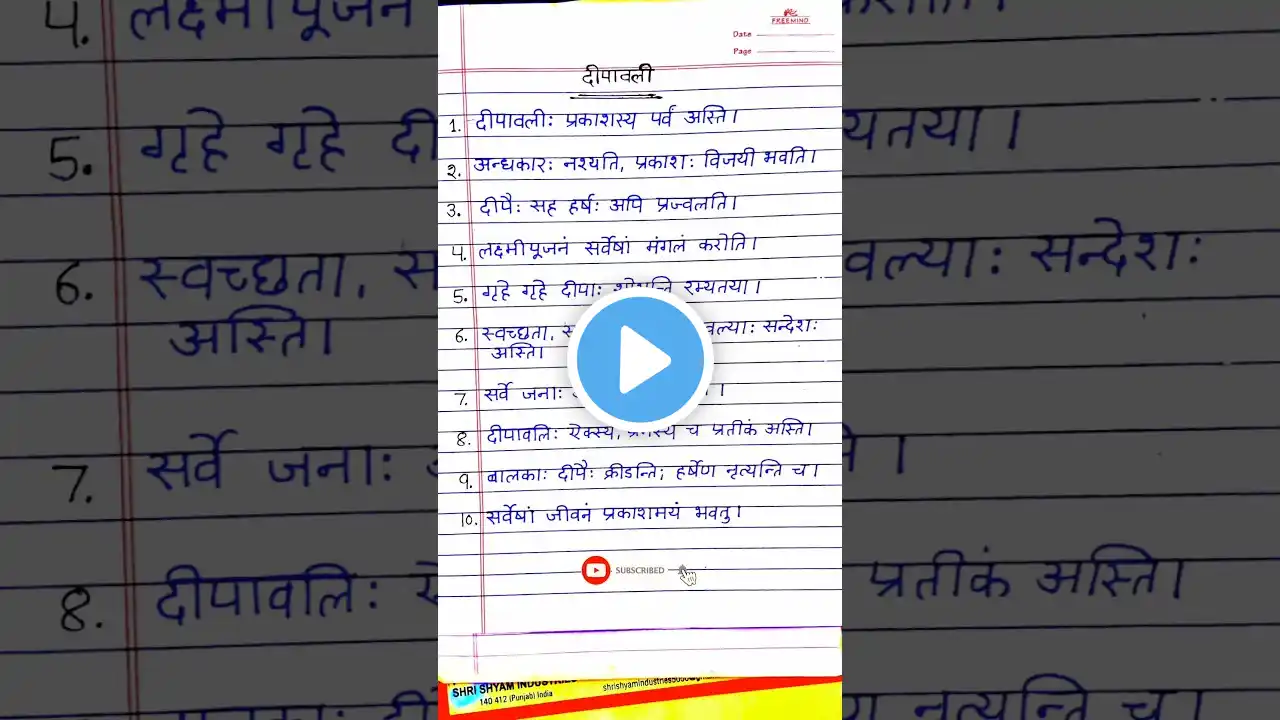 FREEMIND
Date
Page
दीपावली
1. दीपावलीः प्रकाशस्य पर्वं अस्ति।
2. अन्धकारः नश्यति, प्रकाशः विजयी भवति।
3. दीपैः सह हर्षः अपि प्रज्वलति।
4. लक्ष्मीपूजनं सर्वेषां मंगलं करोति।
5. गृहे गृहे दीपाः रम्यतया।
6. स्वच्छता, वल्याः सन्देशः
अस्ति।
7. सर्वे जनाः ।
8. दीपावलिः ऐक्स्य, च प्रतीकं अस्ति।
9. बालकाः दीपैः क्रीडन्ति; हर्षेण नृत्यन्ति च।
10. सर्वेषां जीवनं प्रकाशमयं भवतु।
SUBSCRIBED
SHRI SHYAM INDUSTRIES
140 412 (Punjab) India